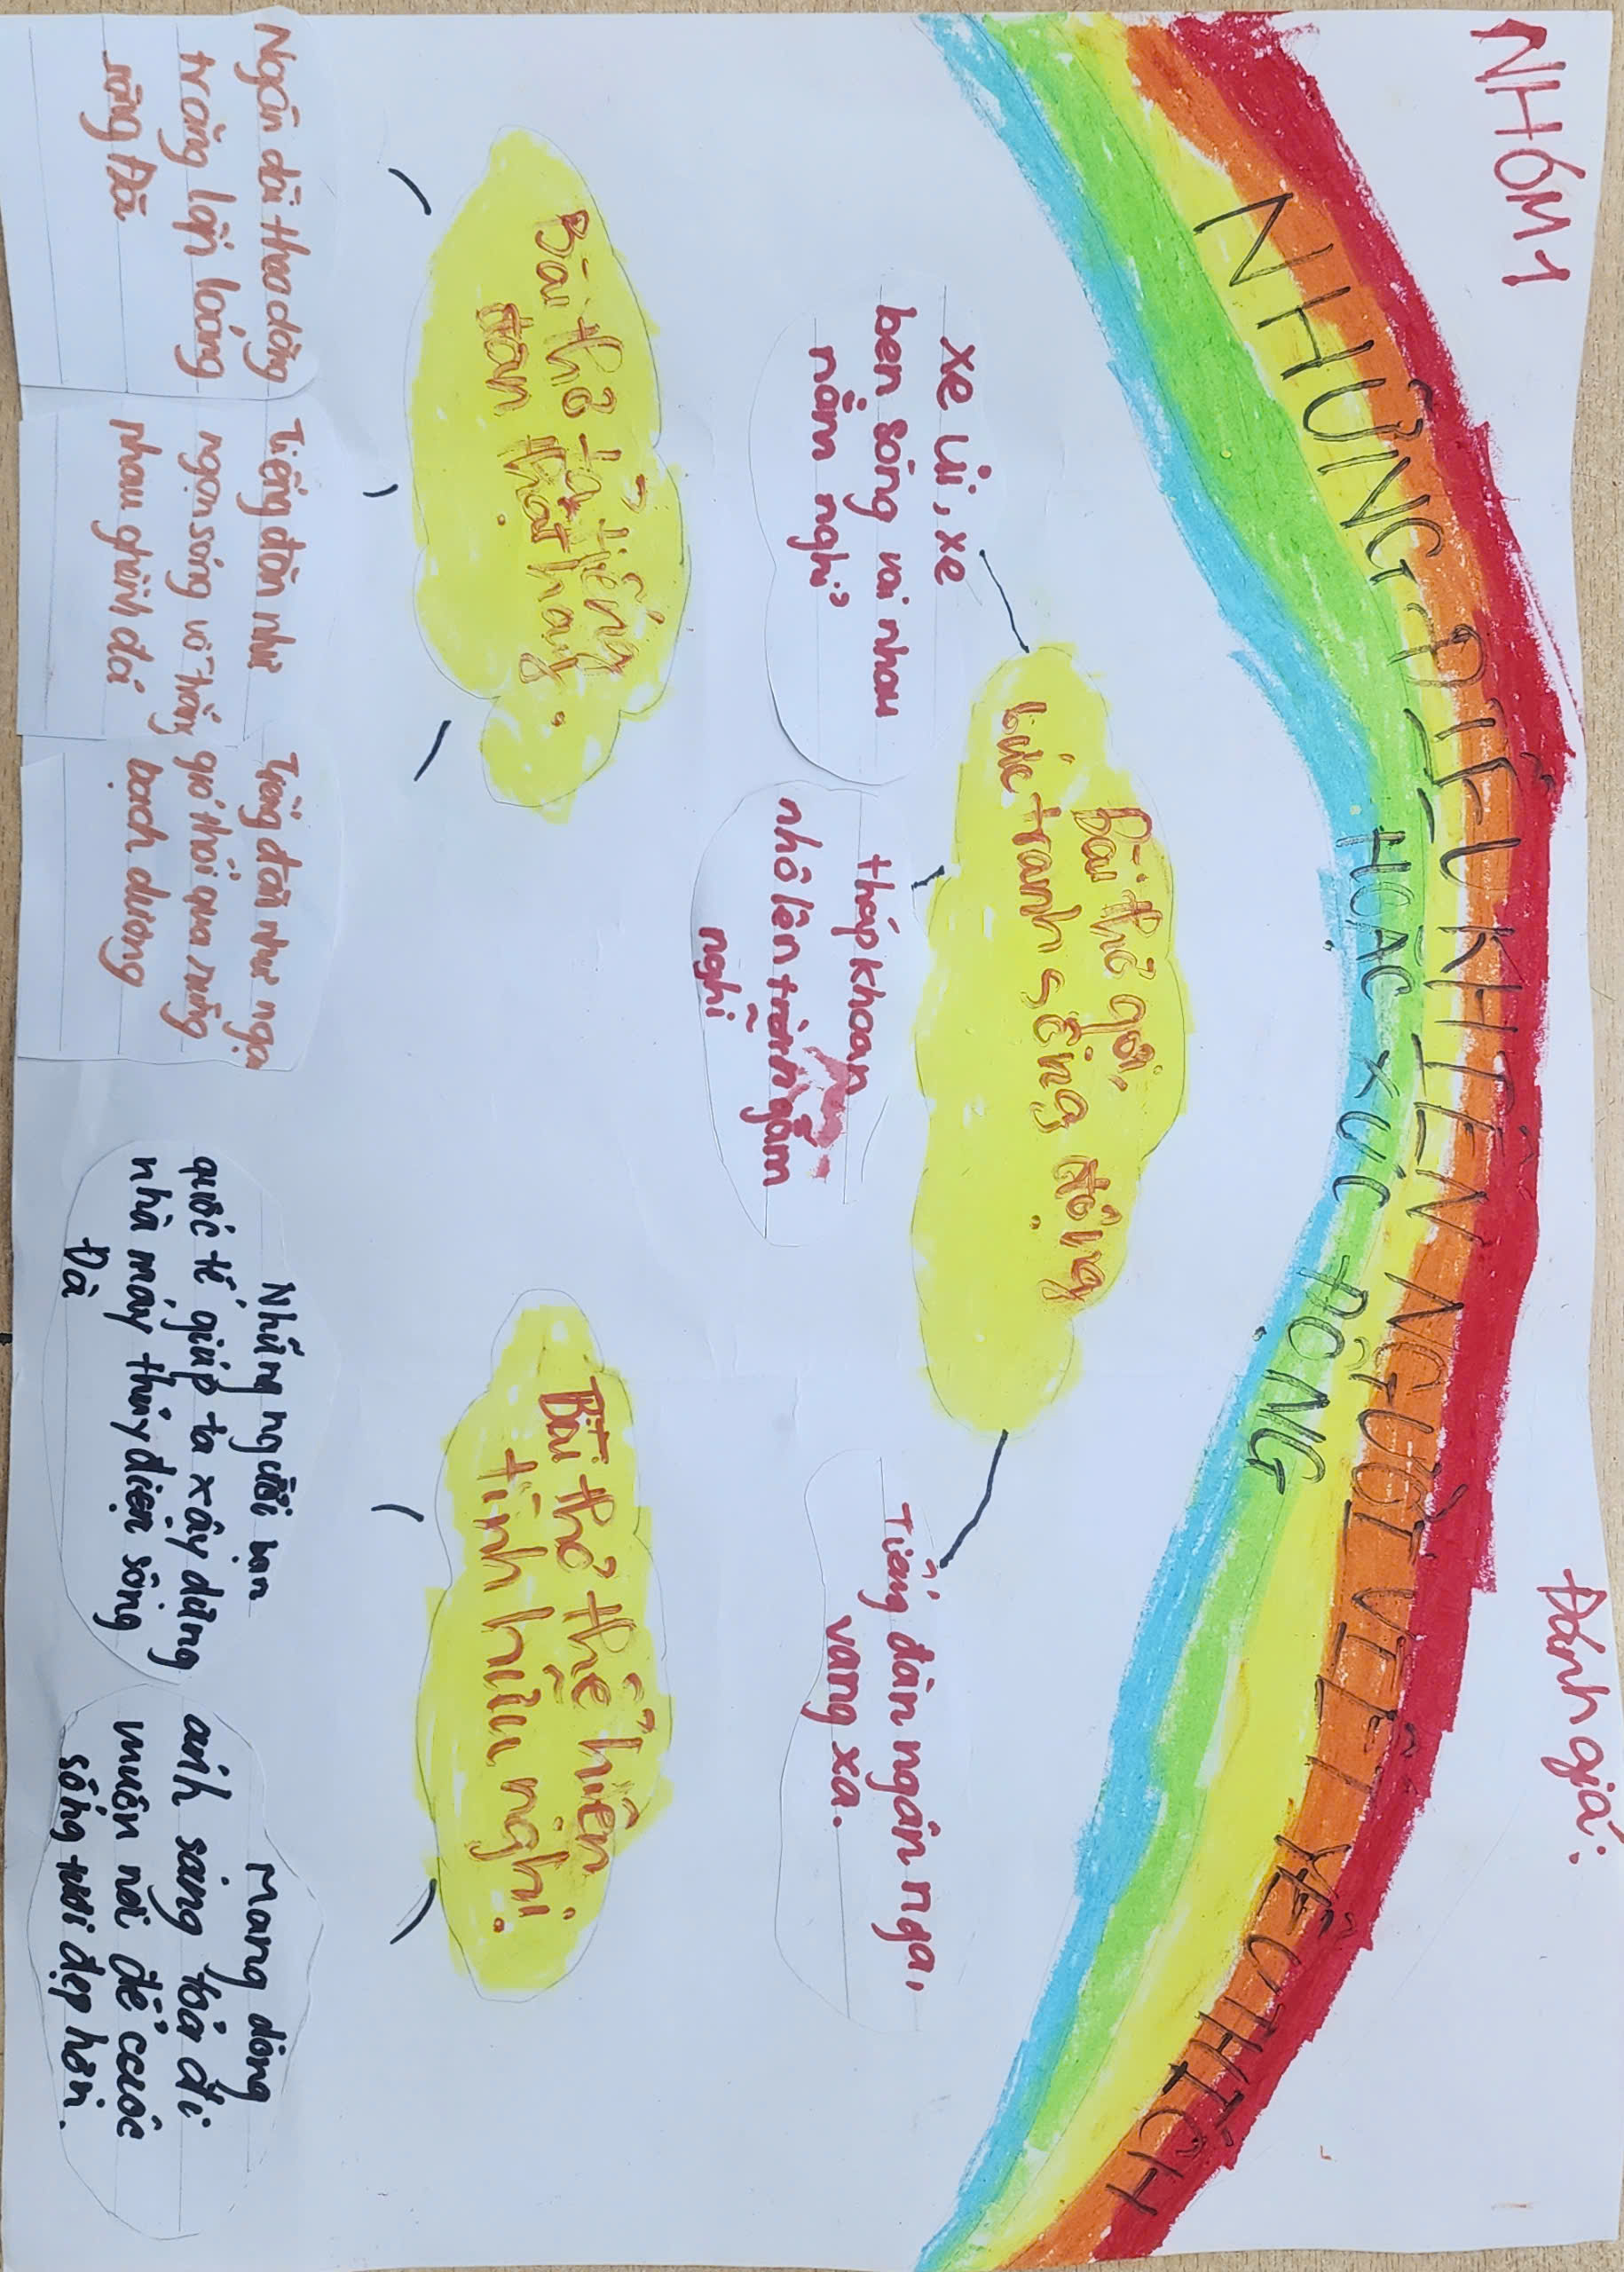 NHÓM 1
Đánh giá:
NHỮNG ĐIỀU KHIẾN NGƯỜI VIẾT YÊU THÍCH
HOẶC XÚC ĐỘNG
Bài thơ gợi
bức tranh sống động
xe ủi, xe
ben sóng vai nhau
nằm nghỉ
tháp khoan
nhô lên trời ngẫm
nghĩ
Tiếng đàn ngân nga,
vang xa.
Bài thơ tả tiếng
đàn thật hay.
Ngân dài theo dòng
trăng lấp loáng
sông Đà
Tiếng đàn như
ngọn sóng vỗ trắng
phau ghềnh đá
Tiếng đàn như ngọn
gió thổi qua rừng
bạch dương
Bài thơ thể hiện
tình hữu nghị.
Những người bạn
quốc tế giúp ta xây dựng
nhà máy thủy điện sông
Đà
Mang dòng
ánh sáng tỏa đi
muôn nơi để cuộc
sống tươi đẹp hơn.